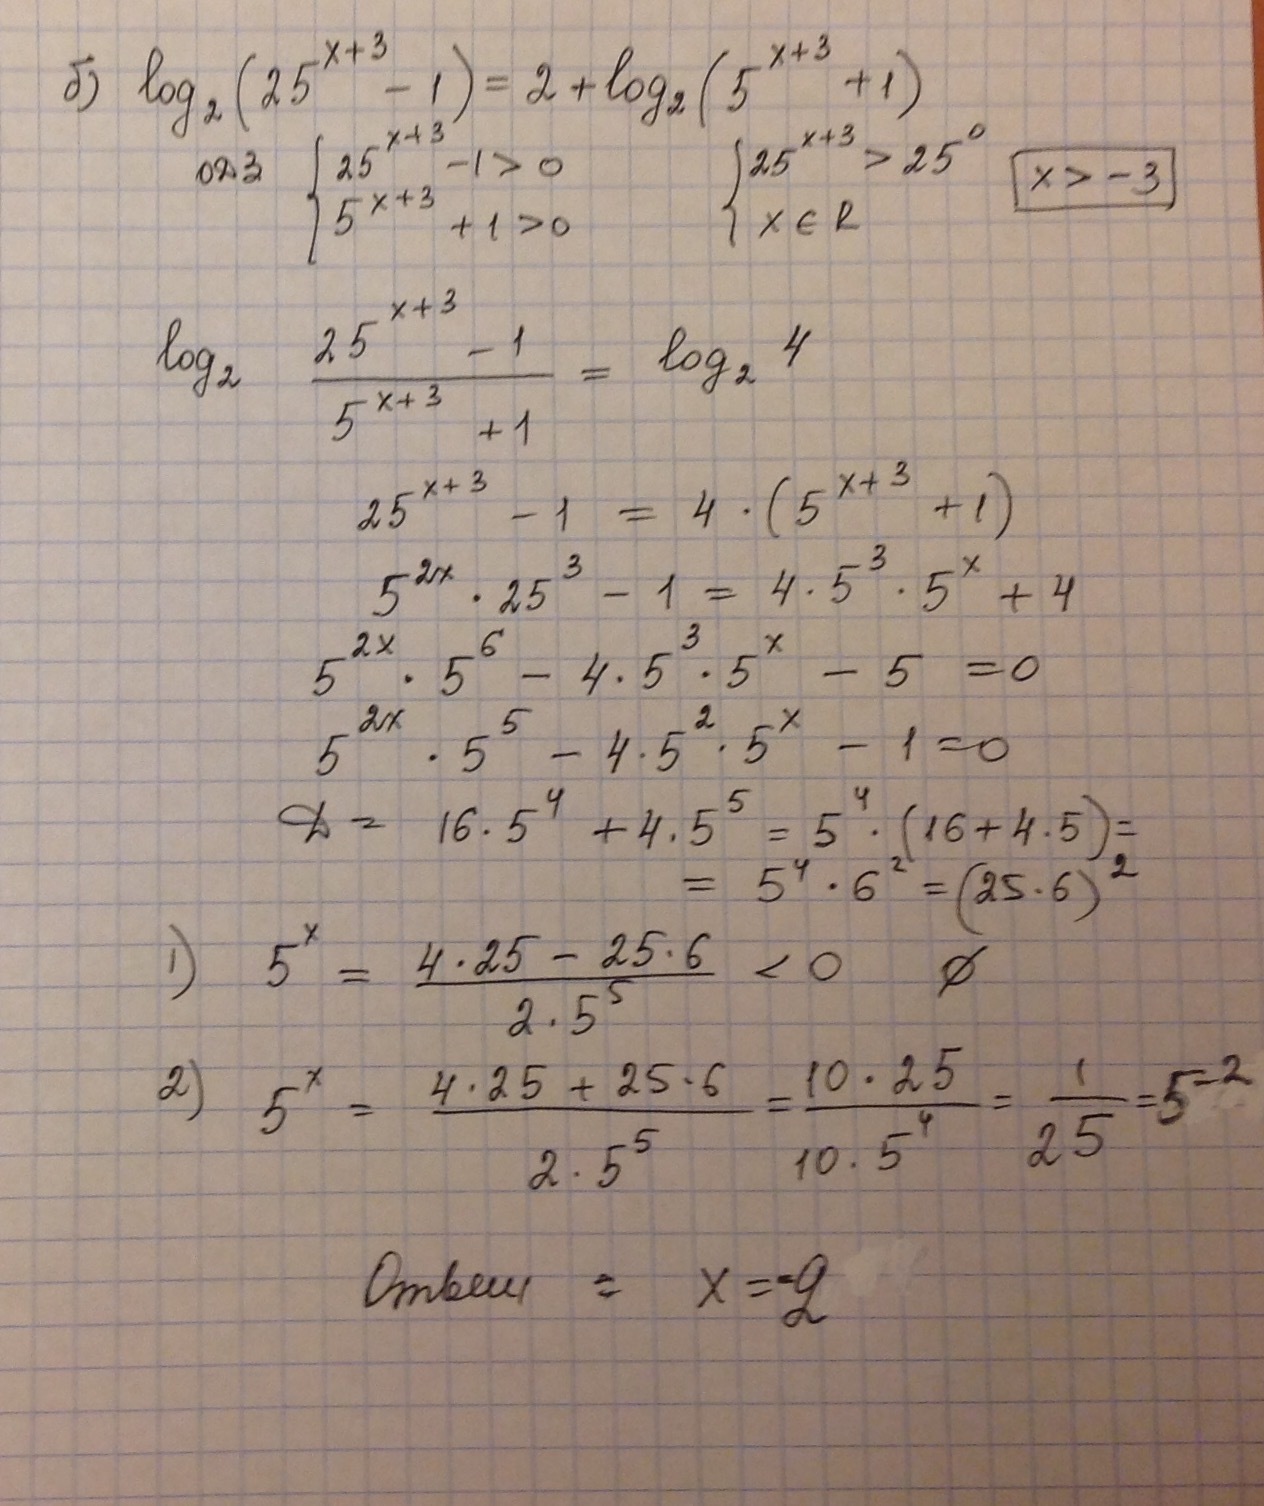 б) log₂(25^(x+3) - 1) = 2 + log₂(5^(x+3) + 1)
ОДЗ { 25^(x+3) - 1 > 0 { 25^(x+3) > 25^0 x > -3
5^(x+3) + 1 > 0 x ∈ R
log₂ (25^(x+3) - 1)/(5^(x+3) + 1) = log₂ 4
25^(x+3) - 1 = 4 · (5^(x+3) + 1)
5^(2x) · 25^3 - 1 = 4 · 5^3 · 5^x + 4
5^(2x) · 5^6 - 4 · 5^3 · 5^x - 5 = 0
5^(2x) · 5^5 - 4 · 5^2 · 5^x - 1 = 0
D = 16 · 5^4 + 4 · 5^5 = 5^4 · (16 + 4 · 5) =
= 5^4 · 6^2 = (25 · 6)^2
1) 5^x = (4 · 25 - 25 · 6)/(2 · 5^5) < 0 ∅
2) 5^x = (4 · 25 + 25 · 6)/(2 · 5^5) = (10 · 25)/(10 · 5^4) = 1/25 = 5^(-2)
Ответ = x = -2